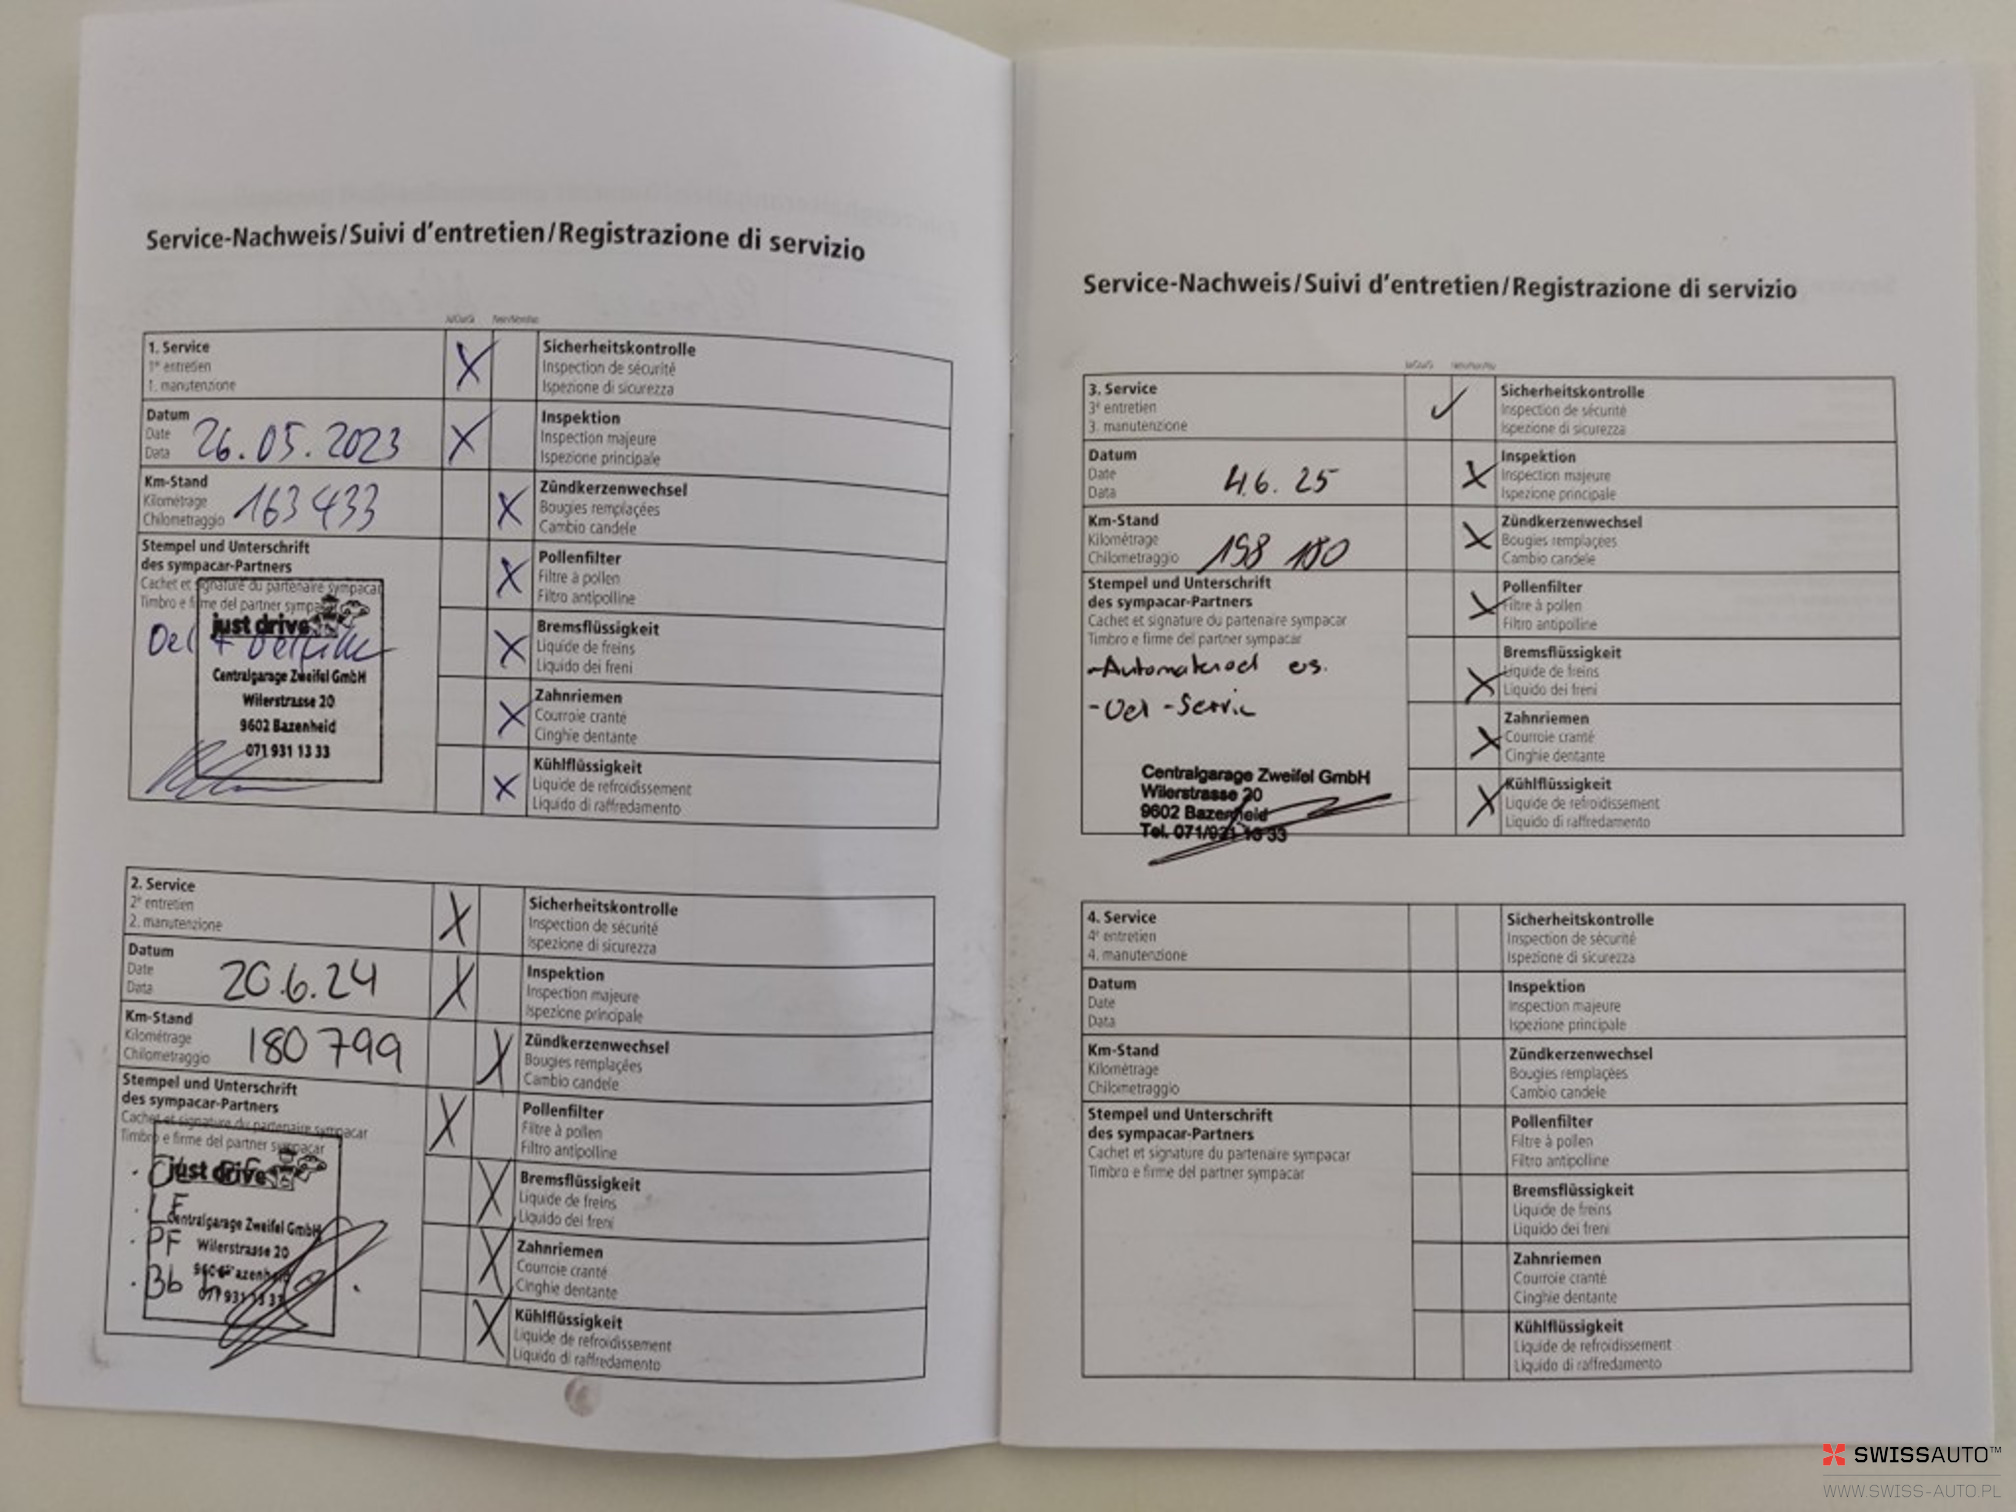 Service-Nachweis/Suivi d'entretien/Registrazione di servizio
Ja/Oui/Si
Nein/Non/No
1. Service
1er entretien
1. manutenzione
X
Sicherheitskontrolle
Inspection de sécurité
Ispezione di sicurezza
Datum
Date
Data
26.05.2023
X
Inspektion
Inspection majeure
Ispezione principale
Km-Stand
Kilométrage
Chilometraggio
163 433
X
Zündkerzenwechsel
Bougies remplaçées
Cambio candele
Stempel und Unterschrift
des sympacar-Partners
Cachet et signature du partenaire sympacar
Timbro e firme del partner sympacar
X
Pollenfilter
Filtre à pollen
Filtro antipolline
just drive
Oel + Oelfilter
Centralgarage Zweifel GmbH
Wilerstrasse 20
9602 Bazenheid
071 931 13 33
X
Bremsflüssigkeit
Liquide de freins
Liquido dei freni
X
Zahnriemen
Courroie cranté
Cinghie dentante
X
Kühlflüssigkeit
Liquide de refroidissement
Liquido di raffredamento
2. Service
2e entretien
2. manutenzione
X
Sicherheitskontrolle
Inspection de sécurité
Ispezione di sicurezza
Datum
Date
Data
20.6.24
X
Inspektion
Inspection majeure
Ispezione principale
Km-Stand
Kilométrage
Chilometraggio
180 799
X
Zündkerzenwechsel
Bougies remplaçées
Cambio candele
Stempel und Unterschrift
des sympacar-Partners
Cachet et signature du partenaire sympacar
Timbro e firme del partner sympacar
X
Pollenfilter
Filtre à pollen
Filtro antipolline
just drive
· LF
Centralgarage Zweifel GmbH
· PF
Wilerstrasse 20
· Bb
9602 Bazenheid
071 931 13 33
X
Bremsflüssigkeit
Liquide de freins
Liquido dei freni
X
Zahnriemen
Courroie cranté
Cinghie dentante
X
Kühlflüssigkeit
Liquide de refroidissement
Liquido di raffredamento
Service-Nachweis/Suivi d'entretien/Registrazione di servizio
Ja/Oui/Si
3. Service
3e entretien
3. manutenzione
✓
Sicherheitskontrolle
Inspection de sécurité
Ispezione di sicurezza
Datum
Date
Data
4.6. 25
X
Inspektion
Inspection majeure
Ispezione principale
Km-Stand
Kilométrage
Chilometraggio
198 180
X
Zündkerzenwechsel
Bougies remplaçées
Cambio candele
Stempel und Unterschrift
des sympacar-Partners
Cachet et signature du partenaire sympacar
Timbro e firme del partner sympacar
X
Pollenfilter
Filtre à pollen
Filtro antipolline
- Oel - Servic
Centralgarage Zweifel GmbH
Wilerstrasse 20
9602 Bazenheid
Tel. 071/931 13 33
X
Bremsflüssigkeit
Liquide de freins
Liquido dei freni
X
Zahnriemen
Courroie cranté
Cinghie dentante
X
Kühlflüssigkeit
Liquide de refroidissement
Liquido di raffredamento
4. Service
4e entretien
4. manutenzione
Sicherheitskontrolle
Inspection de sécurité
Ispezione di sicurezza
Datum
Date
Data
Inspektion
Inspection majeure
Ispezione principale
Km-Stand
Kilométrage
Chilometraggio
Zündkerzenwechsel
Bougies remplaçées
Cambio candele
Stempel und Unterschrift
des sympacar-Partners
Cachet et signature du partenaire sympacar
Timbro e firme del partner sympacar
Pollenfilter
Filtre à pollen
Filtro antipolline
Bremsflüssigkeit
Liquide de freins
Liquido dei freni
Zahnriemen
Courroie cranté
Cinghie dentante
Kühlflüssigkeit
Liquide de refroidissement
Liquido di raffredamento
SWISSAUTO™
WWW.SWISS-AUTO.PL